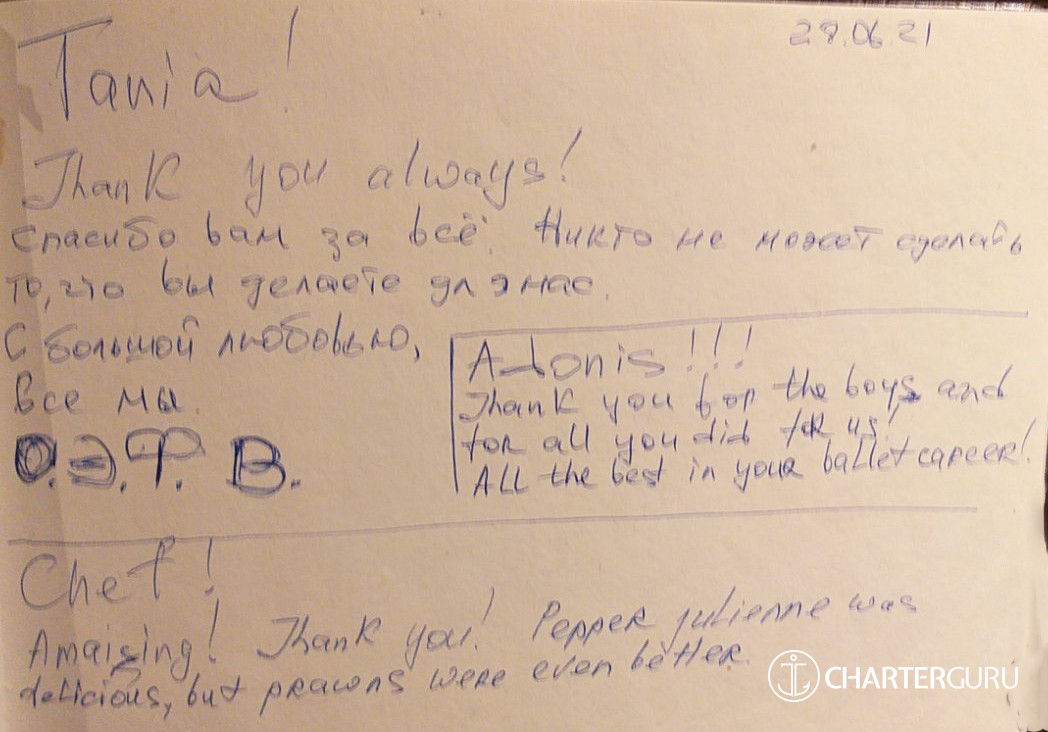 28.06.21
Tania!
Thank you always!
Спасибо вам за всё. Никто не может сделать
то, что вы делаете для нас.
С большой любовью,
все мы.
О.Э.Т. В.
Adonis!!!
Thank you for the boys and
for all you did for us!
All the best in your ballet career!
Chef!
Amaizing! Thank you! Pepper julienne was
delicious, but prawns were even better.
CHARTERGURU